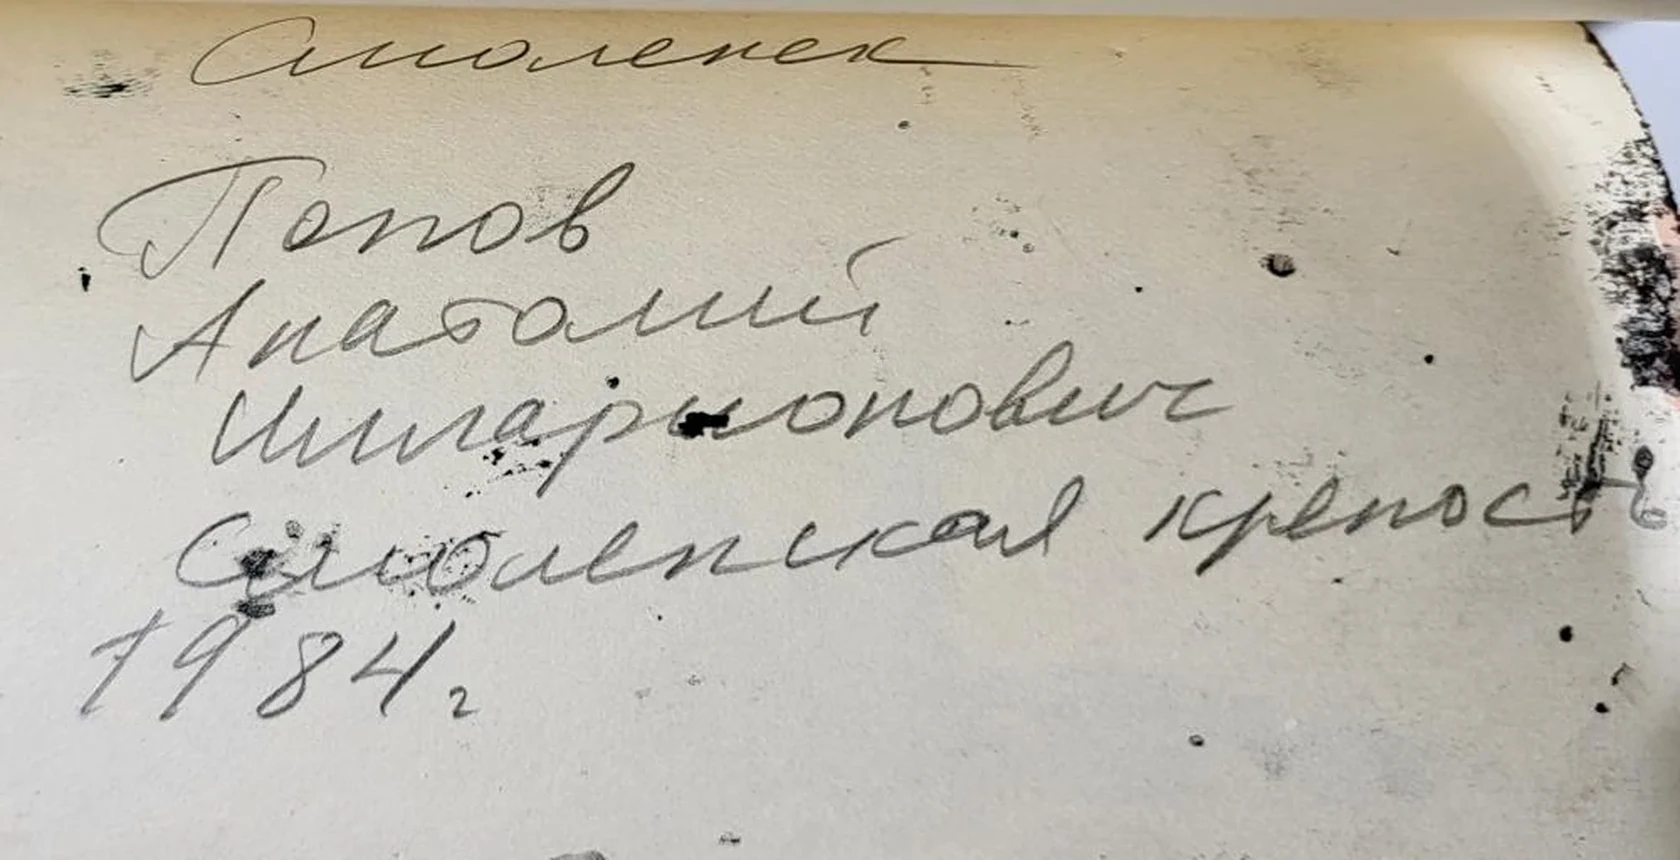 Смоленск
Попов
Анатолий
Илларионович
Смоленская крепость
1984г